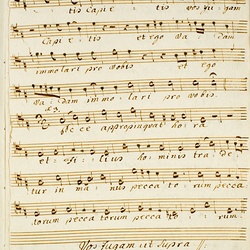 tis Capie tis vos fugam
Capie tis et ego va dam
immolari pro vobis et ego
va dam immo lari pro vobis.
Ecce appropinquat ho ra
et fi lius hominis trade
tur in ma nus pecca to rum pecca
torum pecca torum pecca to rum.
Vos fugam ut supra